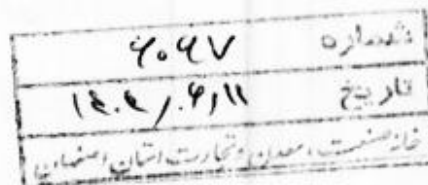 شماره ۶۰۶۷
تاریخ ۱۴۰۴/۰۶/۱۱
خانه صنعت، معدن و تجارت استان اصفهان